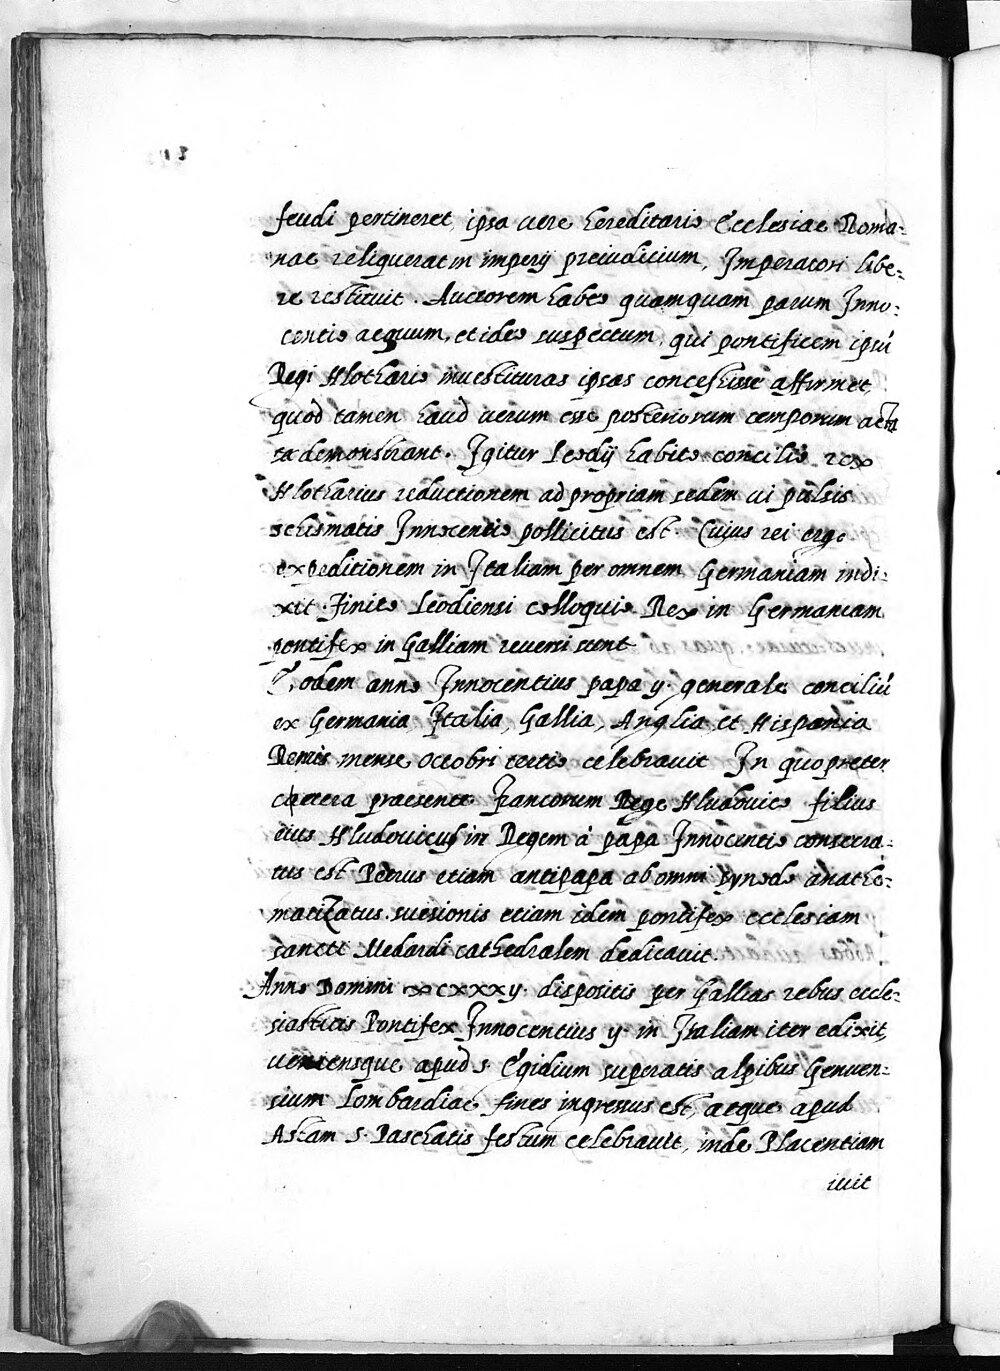 feudi pertineret, ipsa uere hereditario Ecclesiae Roma-
nae reliquerat in imperij preiudicium, Imperatori libe-
re restituit. Auctorem habeo quamquam parum Inno-
centio aequum, et ideo suspectum, qui pontificem ipsũ
Regi Hlothario inuestituras ipsas concessisse affirmet,
quod tamen haud uerum esse posteriorum temporum acta
demonstrant. Igitur Leodij habito concilio rex
Hlotharius reductionem ad propriam sedem ui pulsis
schismatis Innocentio pollicitus est. Cuius rei ergo
expeditionem in Italiam per omnem Germaniam indi-
xit. Finito Leodiensi colloquio Rex in Germaniam
pontifex in Galliam reuersi sunt
Eodem anno Innocentius papa ij. generale conciliũ
ex Germania, Italia, Gallia, Anglia, et Hispania
Remis mense octobri tertio celebrauit In quo preter
caetera praesente Francorum Rege Hludouico filius
eius Hludouicus in Regem à papa Innocentio consecra-
tus est Petrus etiam antipapa ab omni synodo anathe-
matizatus. suesionis etiam idem pontifex ecclesiam
sancti Medardi cathedralem dedicauit.
Anno Domini ∞CXXXIJ. dispositis per Gallias rebus eccle-
siasticis Pontifex Innocentius ij. in Italiam iter edixit,
ueniensque apud s. Egidium superatis alpibus Genuen-
sium Lombardiae fines ingressus est, atque apud
Astam S. Paschatis festum celebrauit, inde Placentiam
iuit